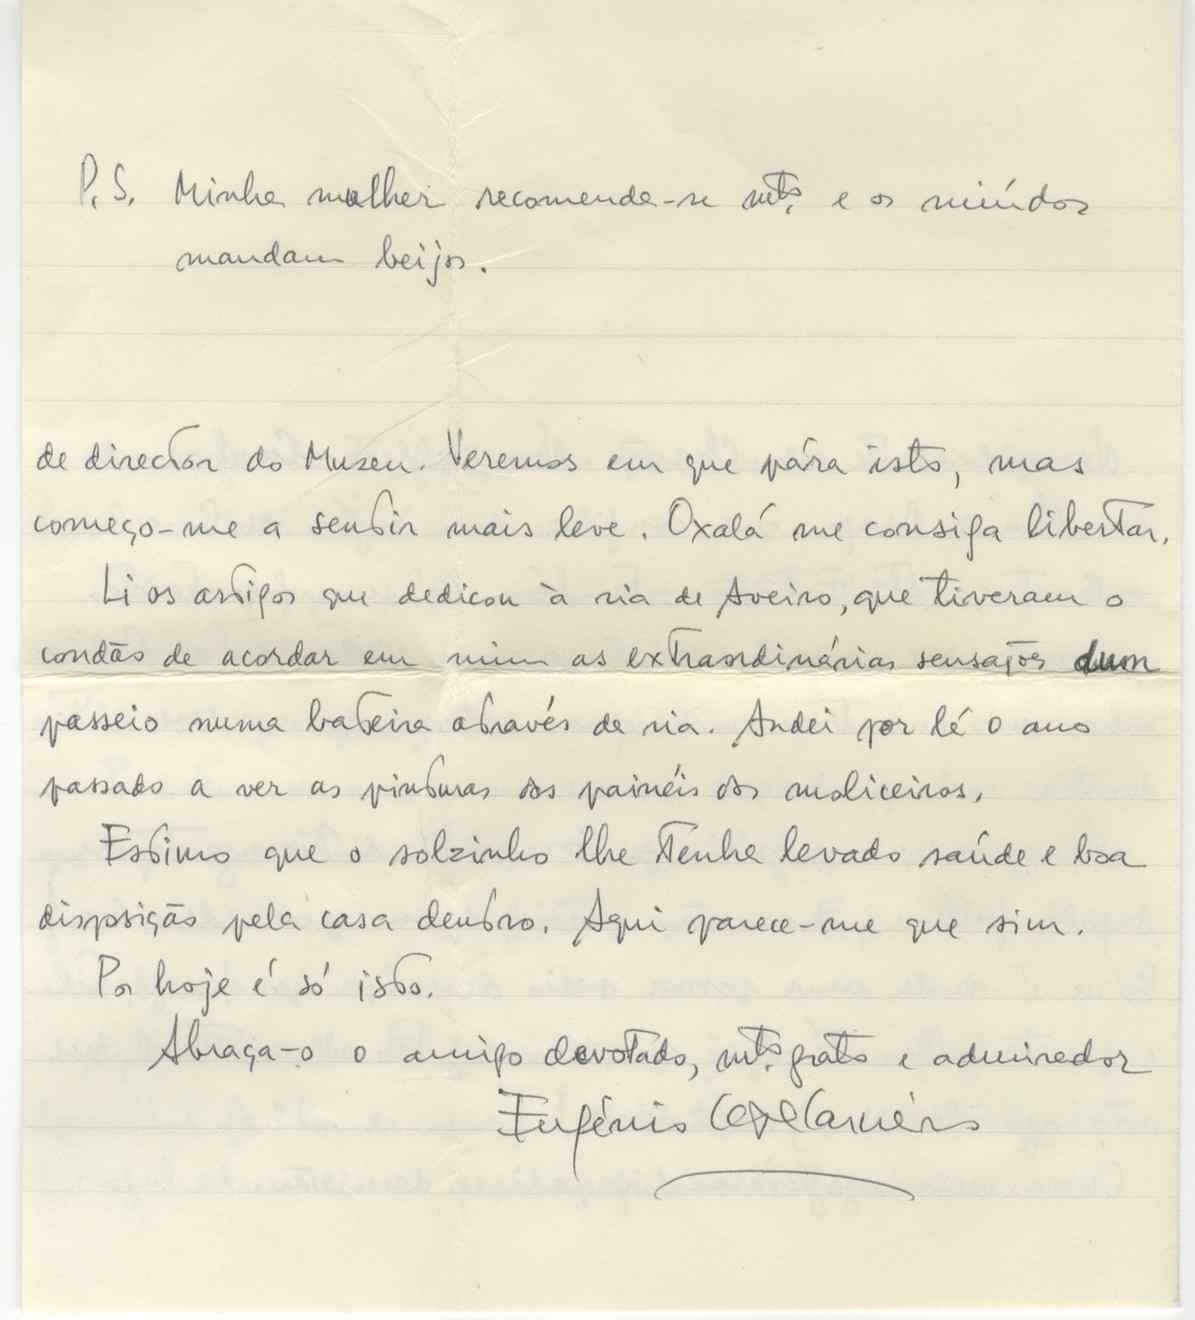 P.S. Minha mulher recomenda-se mtº. e os miúdos
mandam beijos.
de director do Museu. Veremos em que pára isto, mas
começo-me a sentir mais leve. Oxalá me consiga libertar.
Li os artigos que dedicou à ria de Aveiro, que tiveram o
condão de acordar em mim as extraordinárias sensações dum
passeio numa bateira através da ria. Andei por lá o ano
passado a ver as pinturas dos painéis dos moliceiros.
Estimo que o solzinho lhe tenha levado saúde e boa
disposição pela casa dentro. Aqui parece-me que sim.
Por hoje é só isto.
Abraça-o o amigo devotado, mtº. grato e admirador
Eugénio